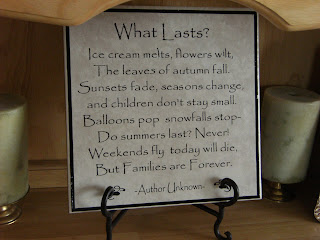 What Lasts?
Ice cream melts, flowers wilt,
The leaves of autumn fall.
Sunsets fade, seasons change,
and children don't stay small.
Balloons pop snowfalls stop-
Do summers last? Never!
Weekends fly today will die,
But Families are Forever.
-Author Unknown-